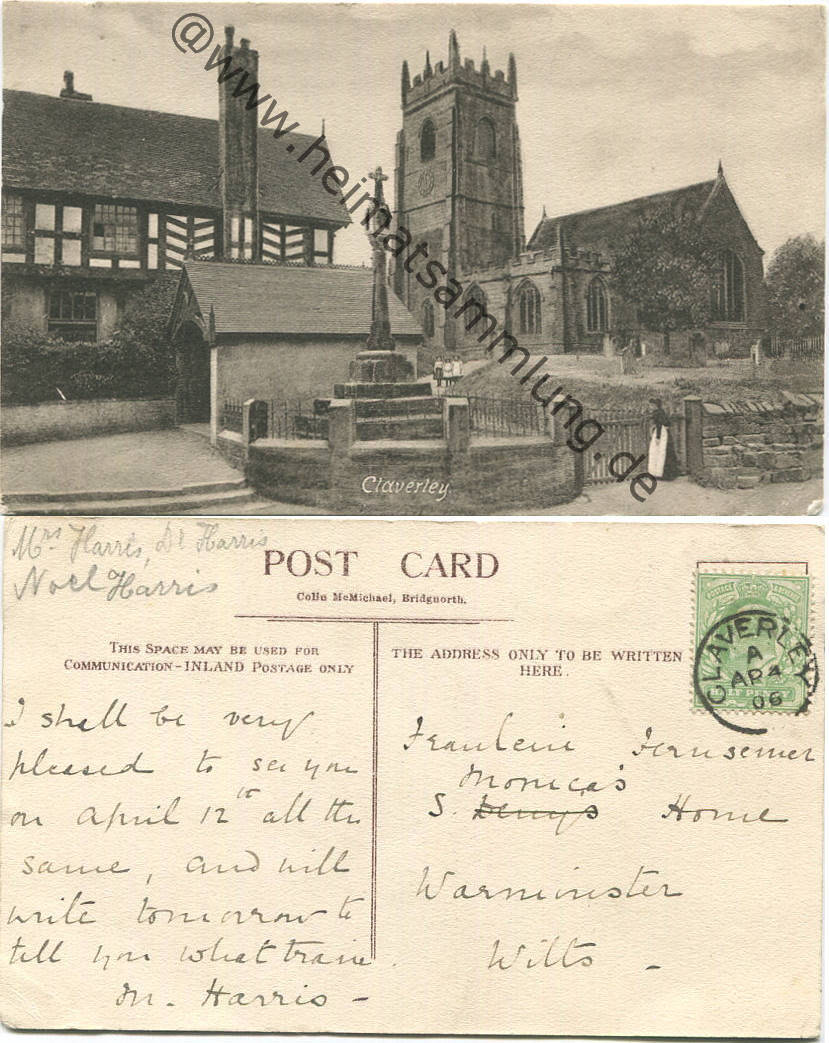 @www.heimatsammlung.de
Claverley.
Mrs Harris, Dr Harris
Noel Harris
POST CARD
Colin McMichael, Bridgnorth.
THIS SPACE MAY BE USED FOR
COMMUNICATION-INLAND POSTAGE ONLY
THE ADDRESS ONLY TO BE WRITTEN
HERE.
CLAVERLEY
A
AP 4
06
HALF PENNY
I shall be very
pleased to see you
on April 12th all the
same, and will
write tomorrow to
tell you what train.
M. Harris -
Fraulein
Monica's
S. Denys Home
Warminster
Wilts -